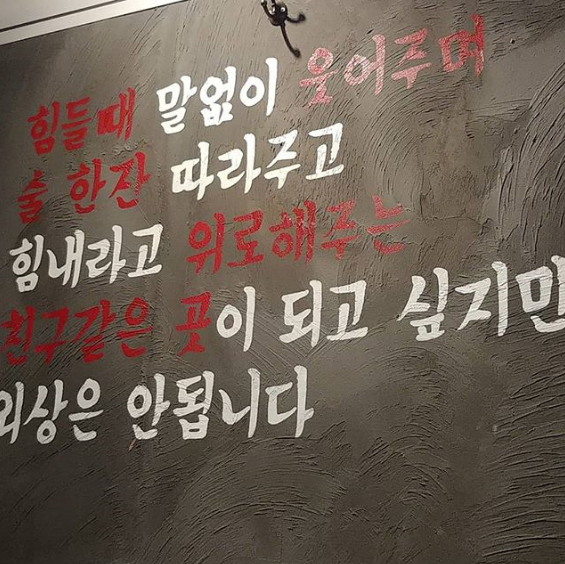 힘들때 말없이 웃어주며
술 한잔 따라주고
힘내라고 위로해주는
친구같은 곳이 되고 싶지만
외상은 안됩니다